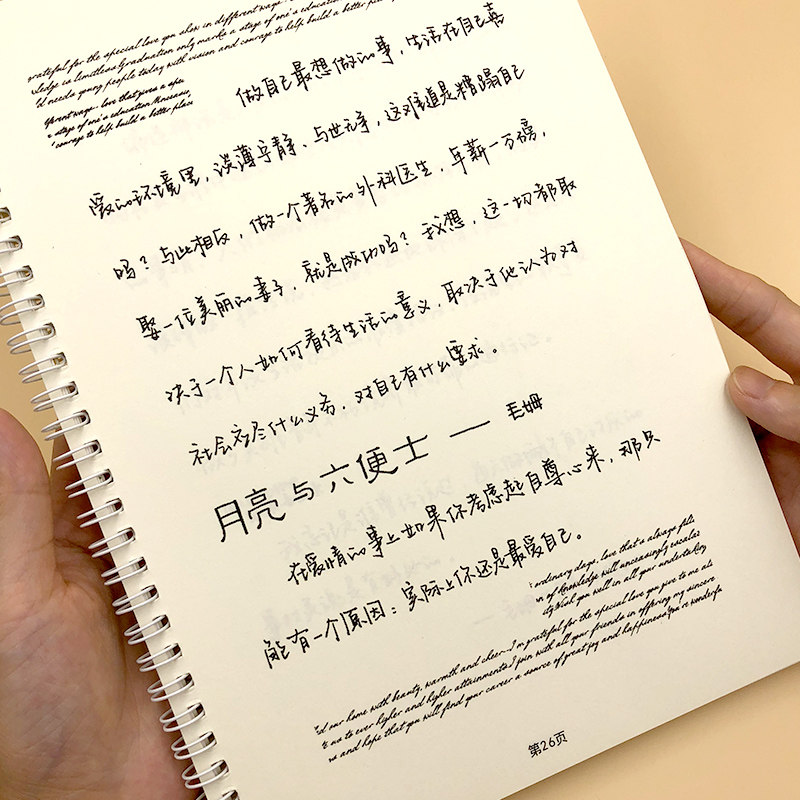 grateful for the special love you show in different ways
wledge is limitless.Graduation only marks a stage of one's education
'd needs young people today with vision and courage to help build a better place
fferent ways. love that gives a spe
a stage of one's education.
'courage to help build a better place
做自己最想做的事，生活在自己喜
爱的环境里，淡薄宁静、与世无争，这难道是糟蹋自己
吗？与此相反，做一个著名的外科医生，年薪一万磅，
娶一位美丽的妻子，就是成功吗？我想，这一切都取
决于一个人如何看待生活的意义，取决于他认为对
社会应尽什么义务，对自己有什么要求。
月亮与六便士 — 毛姆
在爱情的事上如果你考虑起自尊心来，那只
能有一个原因：实际上你还是最爱自己。
ordinary days, love that a always felt
n of knowledge will unceasingly escalat
ity.Wish you well in all your undertaking
'ed our home with beauty, warmth and cheer...I'm grateful for the special love you give to me ats
t us to ever higher and higher attainments.I join with all your friends in offering my sincere
ws and hope that you will find your career a source of great joy and happiness.You're wonderfu
第26页